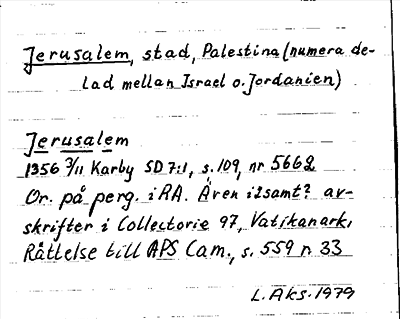 Jerusalem, stad, Palestina (numera de-
lad mellan Israel o. Jordanien)
Jerusalem
1356 3/11 Karby SD 7:1, s. 109, nr 5662
Or. på perg. i RA. Även i 2 samt? av-
skrifter i Collectorie 97, Vatikanark.
Rättelse till APS Cam., s. 559 n 33
L. Aks. 1979